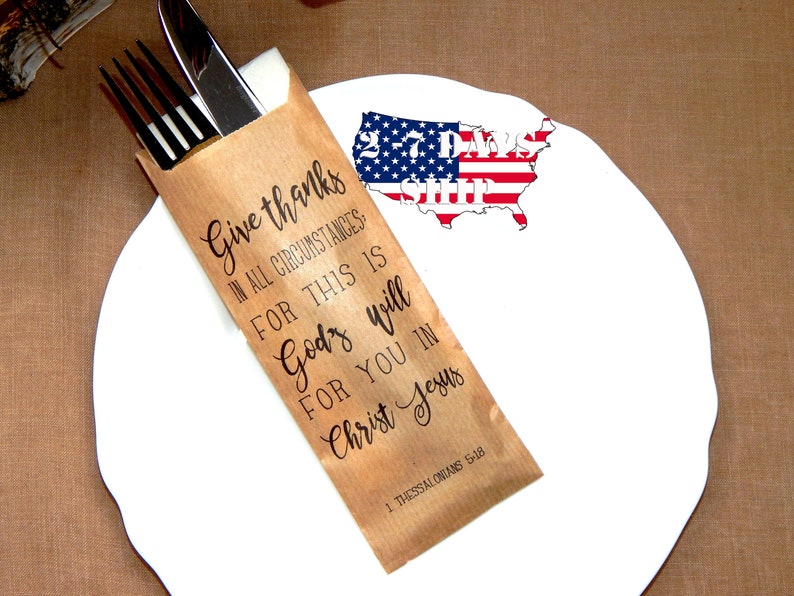 Give thanks
IN ALL CIRCUMSTANCES;
FOR THIS IS
God's Will
FOR YOU IN
Christ Jesus
1 THESSALONIANS 5:18
2 -7 DAYS
SHIP